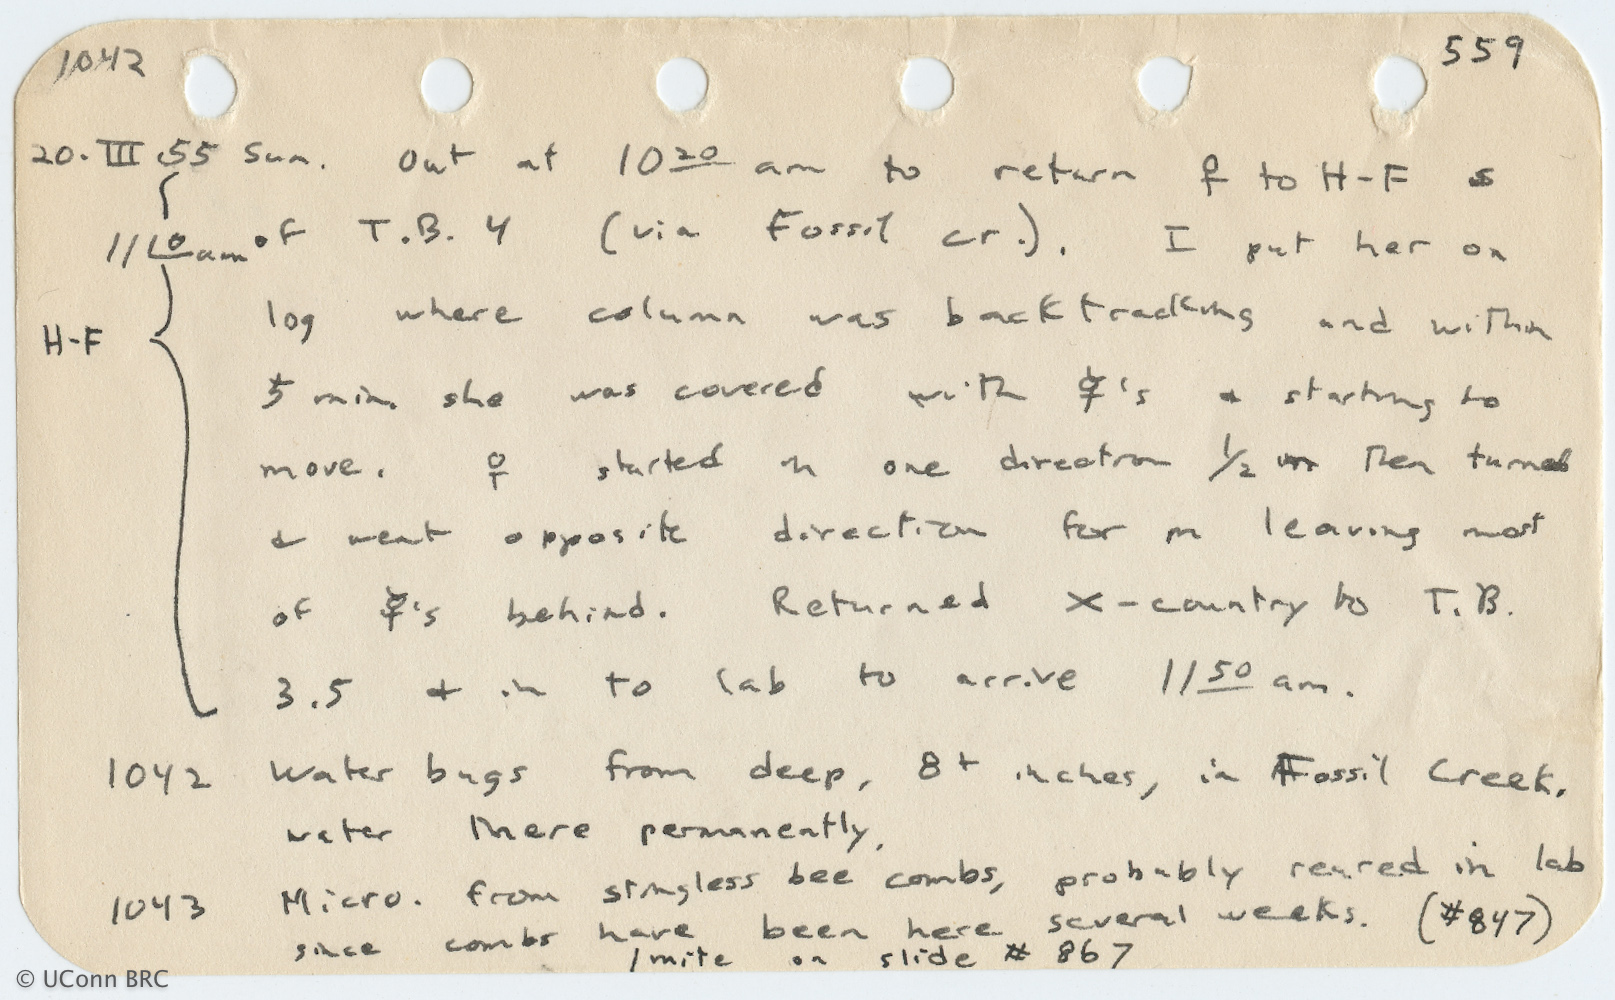 1042 559
20.III.55 Sun. Out at 10 20 am to return ♀ to H-F s
11 10 am of T.B. 4 (via Fossil cr.). I put her on
log where column was backtracking and within
H-F
5 min. she was covered with ☿'s & starting to
move. ♀ started in one direction 1/2 m then turned
& went opposite direction for m leaving most
of ☿'s behind. Returned X-country to T.B.
3.5 & in to lab to arrive 11 50 am.
1042 Water bugs from deep, 8+ inches, in Fossil Creek.
water there permanently.
1043 Micro. from stingless bee combs, probably reared in lab
since combs have been here several weeks. (#847)
1 mite on slide # 867
© UConn BRC